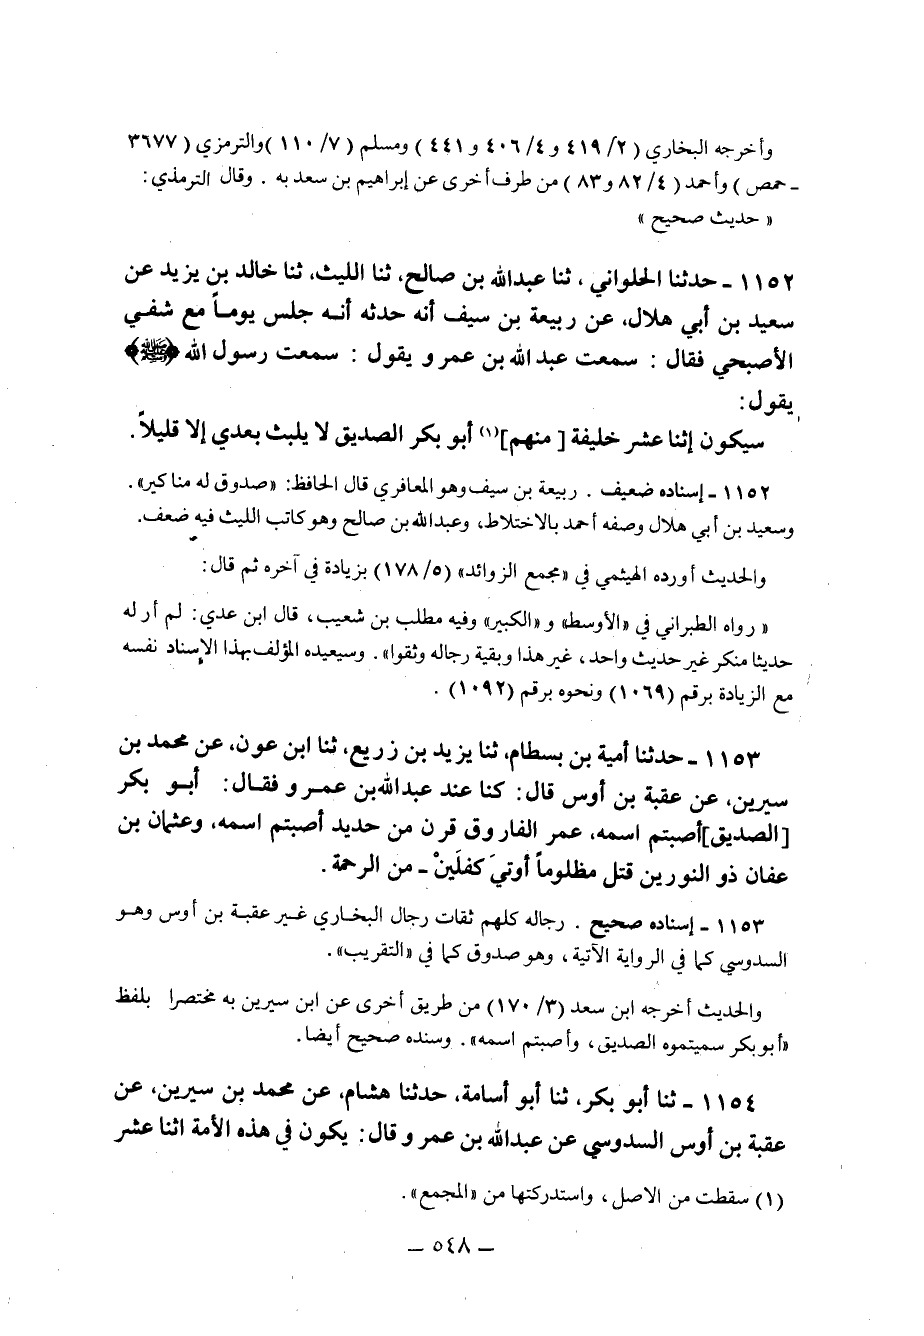 وأخرجه البخاري ( ٢/ ٤١٩ و ٤/ ٤٠٦ و ٤٤١ ) ومسلم ( ٧/ ١١٠ )والترمزي ( ٣٦٧٧
ـ حمص ) وأحمد ( ٤/ ٨٢ و ٨٣ ) من طرف أخرى عن إبراهيم بن سعد به . وقال الترمذي :
« حديث صحيح »
١١٥٢ ـ حدثنا الحلواني ، ثنا عبدالله بن صالح، ثنا الليث، ثنا خالد بن يزيد عن
سعيد بن أبي هلال، عن ربيعة بن سيف أنه حدثه أنه جلس يوماً مع شفي
الأصبحي فقال : سمعت عبدالله بن عمرو يقول : سمعت رسول الله ﴿ﷺ﴾
يقول:
سيكون إثنا عشر خليفة [ منهم](١) أبو بكر الصديق لا يلبث بعدي إلا قليلاً.
١١٥٢ ـ إسناده ضعيف . ربيعة بن سيف وهو المعافري قال الحافظ: «صدوق له مناكير».
وسعيد بن أبي هلال وصفه أحمد بالاختلاط، وعبدالله بن صالح وهو كاتب الليث فيه ضعف.
والحديث أورده الهيثمي في «مجمع الزوائد» (٥/ ١٧٨) بزيادة في آخره ثم قال:
« رواه الطبراني في «الأوسط» و «الكبير» وفيه مطلب بن شعيب، قال ابن عدي: لم أر له
حديثا منكر غير حديث واحد، غير هذا وبقية رجاله وثقوا». وسيعيده المؤلف بهذا الإسناد نفسه
مع الزيادة برقم (١٠٦٩) ونحوه برقم (١٠٩٢) .
١١٥٣ ـ حدثنا أمية بن بسطام، ثنا يزيد بن زريع، ثنا ابن عون، عن محمد بن
سيرين، عن عقبة بن أوس قال: كنا عند عبدالله بن عمرو فقال: أبو بكر
[الصديق]أصبتم اسمه، عمر الفاروق قرن من حديد أصبتم اسمه، وعثمان بن
عفان ذو النورين قتل مظلوماً أوتيَ كفلَينْ ـ من الرحمة.
١١٥٣ ـ إسناده صحيح . رجاله كلهم ثقات رجال البخاري غير عقبة بن أوس وهو
السدوسي كما في الرواية الآتية، وهو صدوق كما في «التقريب».
والحديث أخرجه ابن سعد (٣/ ١٧٠) من طريق أخرى عن ابن سيرين به مختصرا بلفظ
«أبو بكر سميتموه الصديق، وأصبتم اسمه». وسنده صحيح أيضا.
١١٥٤ ـ ثنا أبو بكر، ثنا أبو أسامة، حدثنا هشام، عن محمد بن سيرين، عن
عقبة بن أوس السدوسي عن عبدالله بن عمرو قال: يكون في هذه الأمة اثنا عشر
(١) سقطت من الاصل، واستدركتها من «المجمع».
ـ ٥٤٨ ـ